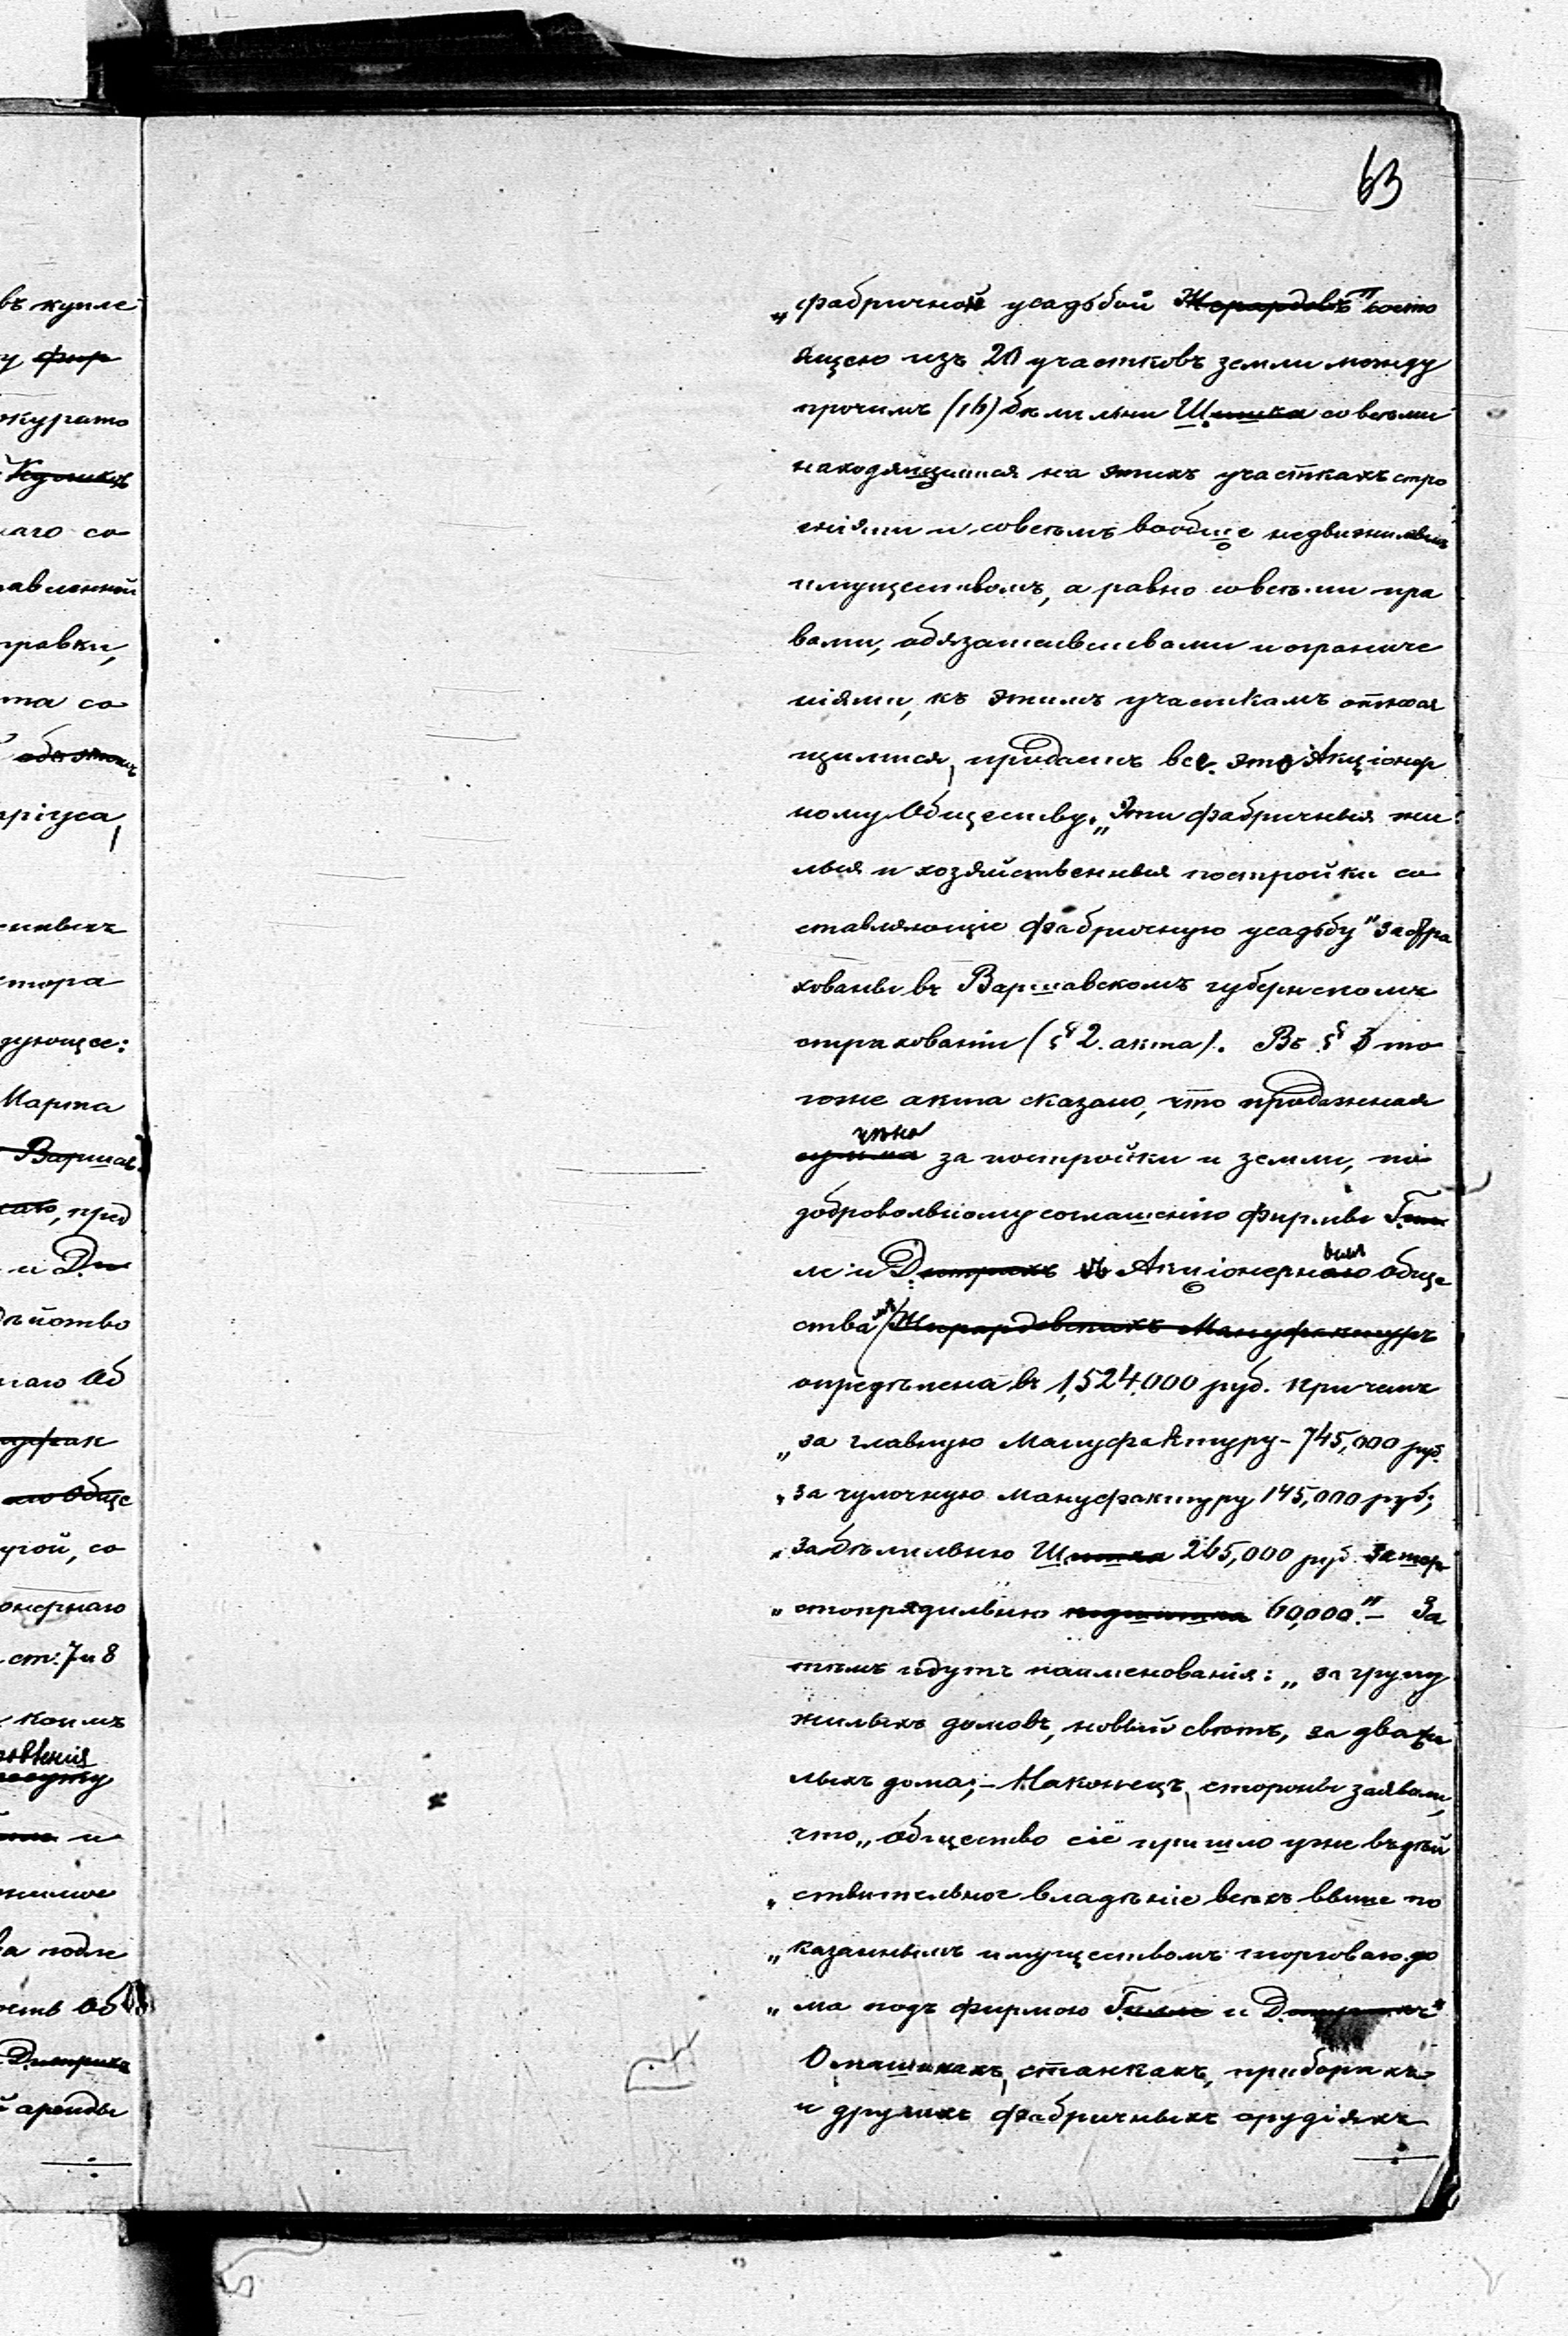 63
„фабричной усадьбой Жерардовъ" состо
ящею изъ 20 участковъ земли между
прочимъ (16) бѣлильни Шишка со всѣми
находящимися на этихъ участкахъ стро
еніями и со всѣмъ вообще недвижимымъ
имуществомъ, а равно со всѣми пра
вами, обязательствами и ограниче
ніями, къ этимъ участкамъ относя
щимися, продаетъ все это Акціонер
ному Обществу. „Эти фабричныя жи
лыя и хозяйственныя постройки со
ставляющіе фабричную усадьбу" застра
хованы въ Варшавскомъ губернскомъ
страхованіи (§ 2. акта). Въ § 3 то
гоже акта сказано, что продажная
цѣна
сумма за постройки и земли, по
добровольному соглашенію фирмы Гил
ле и Дитрихъ и Акціонернаго обще
ства Жирардовскихъ Мануфактуръ
опредѣлена въ 1,524,000 руб. причемъ
„за главную Мануфактуру - 745,000 руб.
„за чулочную мануфактуру 145,000 руб;
„за бѣлильню Шишка 265,000 руб за шер
„стопрядильню подшишка 60,000." - За
тѣмъ идутъ наименованія: „за групу
жилыхъ домовъ, новый свѣтъ, за два жи
лыхъ дома; - Наконецъ, стороны заявили,
что „общество сіе пришло уже въ дѣй
„ствительное владѣніе всѣхъ выше по
„казаннымъ имуществомъ торговаго до
„ма подъ фирмою Гилле и Дитрихъ"
О машинахъ, станкахъ, приборахъ
и другихъ фабричныхъ орудіяхъ
въ купле
у фир
курато
наго со
равки,
та со
ріуса,
тора
дующее:
Марта
Варшав
пред
и Ди
наго Об
ио Обще
угой, со
онернаго
ст: 7 и 8
коимъ
и
Об
Дитриха
аренды